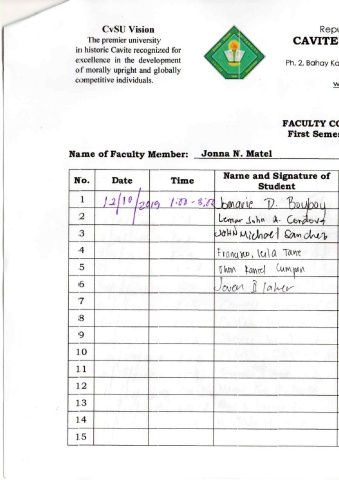 CvSU Vision
The premier university
in historic Cavite recognized for
excellence in the development
of morally upright and globally
competitive individuals.
Repu
CAVITE
Ph. 2, Bahay Ka
w
FACULTY CO
First Semes
Name of Faculty Member: Jonna N. Matel
No. Date Time Name and Signature of Student
1 12/10/2019 1:00 - 3:00 D. Boyboy
2 Lemar John A. Cordova
3 John Michael Sanchez
4 Francisco,
5 Jhon
6 Joven
7
8
9
10
11
12
13
14
15